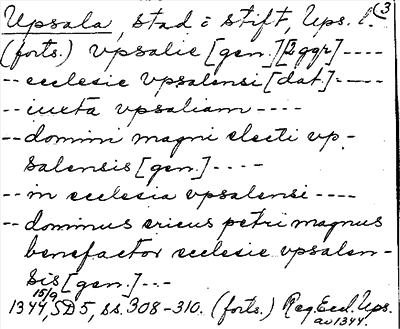 Upsala, stad i stift, Ups. l. (3
(forts.) vpsalie [gen.] [2 ggr] ----
-- ecclesie vpsalensi [dat.] ----
-- iuxta vpsaliam ----
-- domini magni electi vp-
salensis [gen.] ----
-- in ecclesia vpsalensi ----
-- dominus ericus petri magnus
benefactor ecclesie vpsalen-
sis [gen.] ---
15/9
1344, SD 5, ss. 308-310. (forts.) Reg. Eccl. Ups.
av 1344.